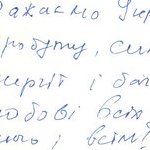 ажаємо Укр
робуту, сил
нергії і баг
собові всіх
ного і всім!